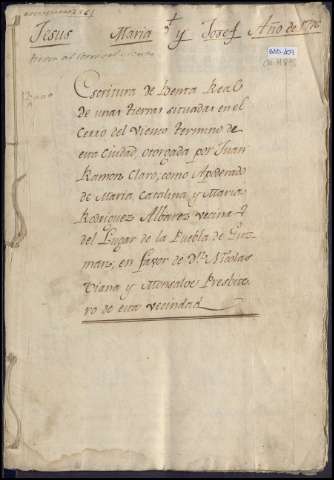 Jesus Maria y Josef Año de 1776
Escritura de Venta Real
de unas tierras situadas en el
Cerro del Viento termino de
esta Ciudad, otorgada por Juan
Ramon Claro, como Apoderado
de Maria, Catalina, y Maria
Rodriguez Albarez vecina s
del Lugar de la Puebla de Guz
man; en favor de Dn. Nicolas
Viana y Monsalve Presbite
ro de esta vecindad